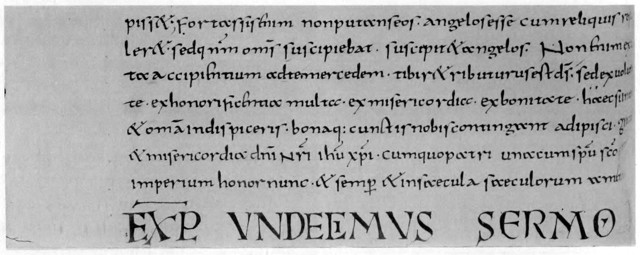 pisset fortassis enim non putans eos. angelos esse cum reliquis
leret sed qnm oms suscipiebat. suscipit & angelos. Non enim
ta accipientium ad te mercedem. tibi r&ributurus est ds. sed ex
te. ex honorificentia multa. ex misericordia. ex bonitate. haec
& oma indispiceris. bonaq: cunctis nobis contingant adipisci.
& misericordia dni nri ihu xpi. cum quo patri una cum spu sco
imperium honor nunc. & semp & in saecula saeculorum am
EXP VNDECIMVS SERMO